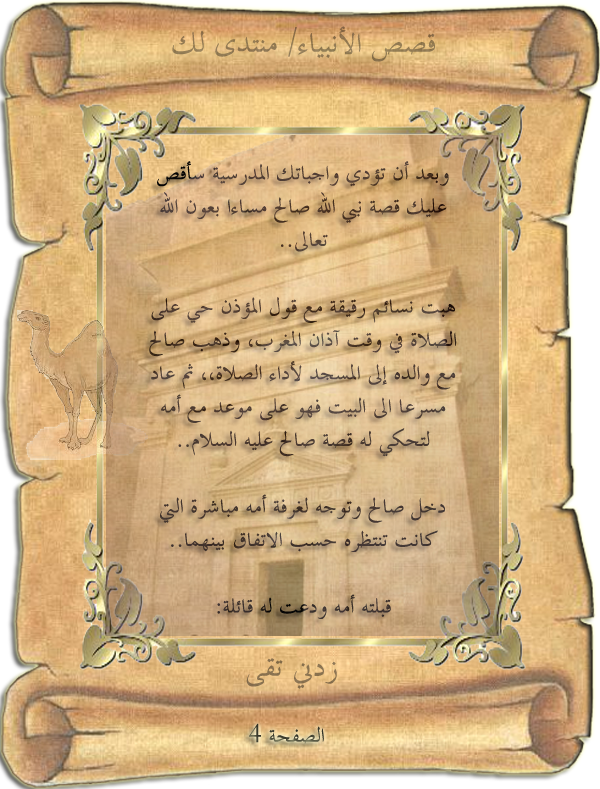 قصص الأنبياء/ منتدى لك
وبعد أن تؤدي واجباتك المدرسية سأقص
عليك قصة نبي الله صالح مساءا بعون الله
تعالى..
هبت نسائم رقيقة مع قول المؤذن حي على
الصلاة في وقت آذان المغرب، وذهب صالح
مع والده إلى المسجد لأداء الصلاة،، ثم عاد
مسرعا الى البيت فهو على موعد مع أمه
لتحكي له قصة صالح عليه السلام..
دخل صالح وتوجه لغرفة أمه مباشرة التي
كانت تنتظره حسب الاتفاق بينهما..
قبلته أمه ودعت له قائلة:
زدني تقى
الصفحة 4